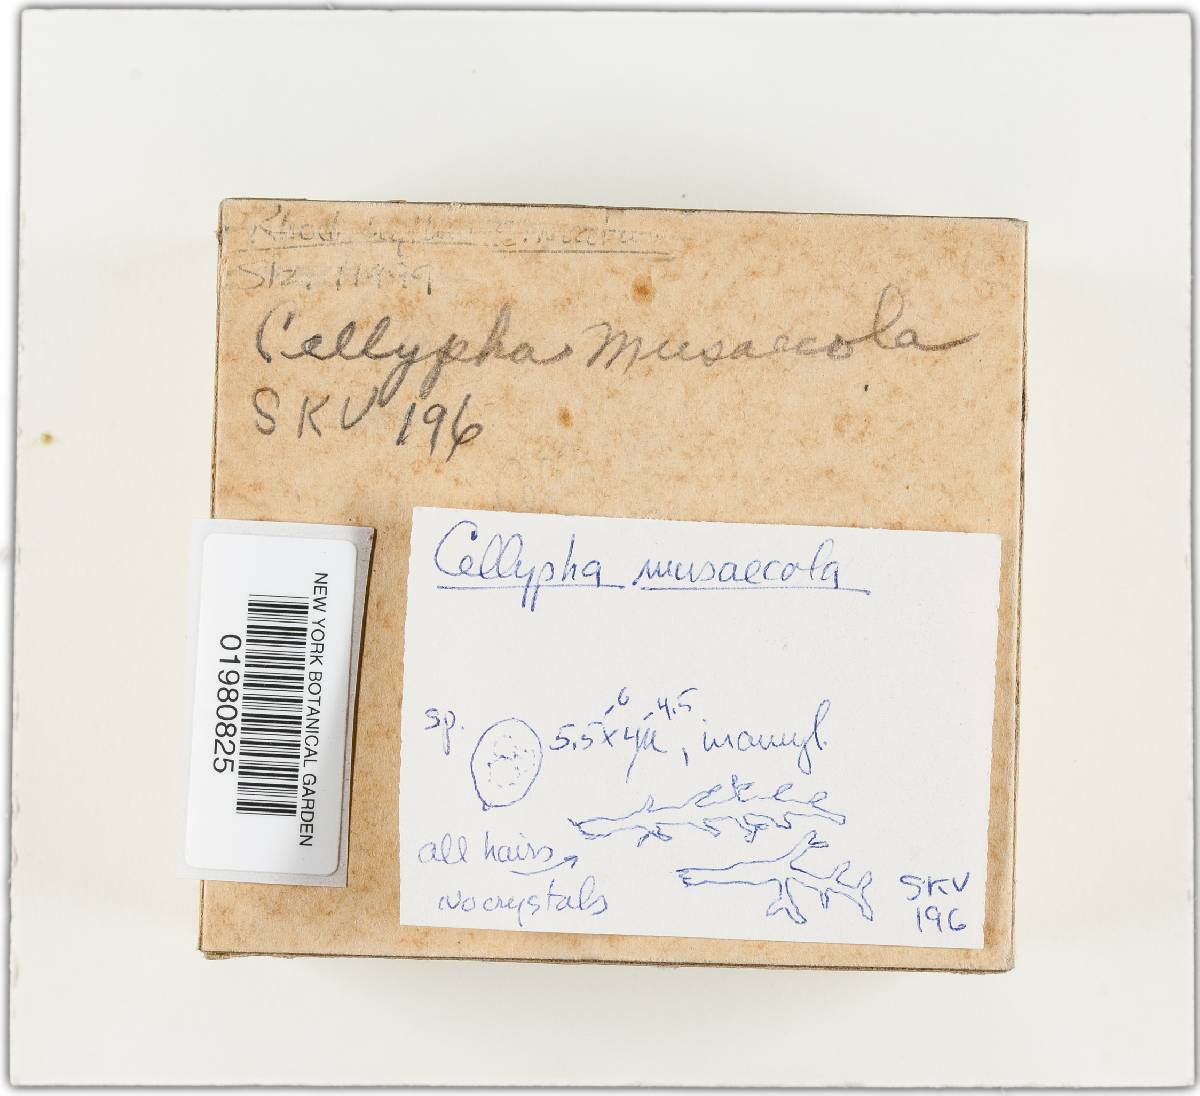 Cellypha musaecola
SKV 196
NEW YORK BOTANICAL GARDEN
01980825
Cellypha musaecola
sp. 5.5-6 x 4-4.5 µ, inamyl.
all hairs
no crystals
SKV
196